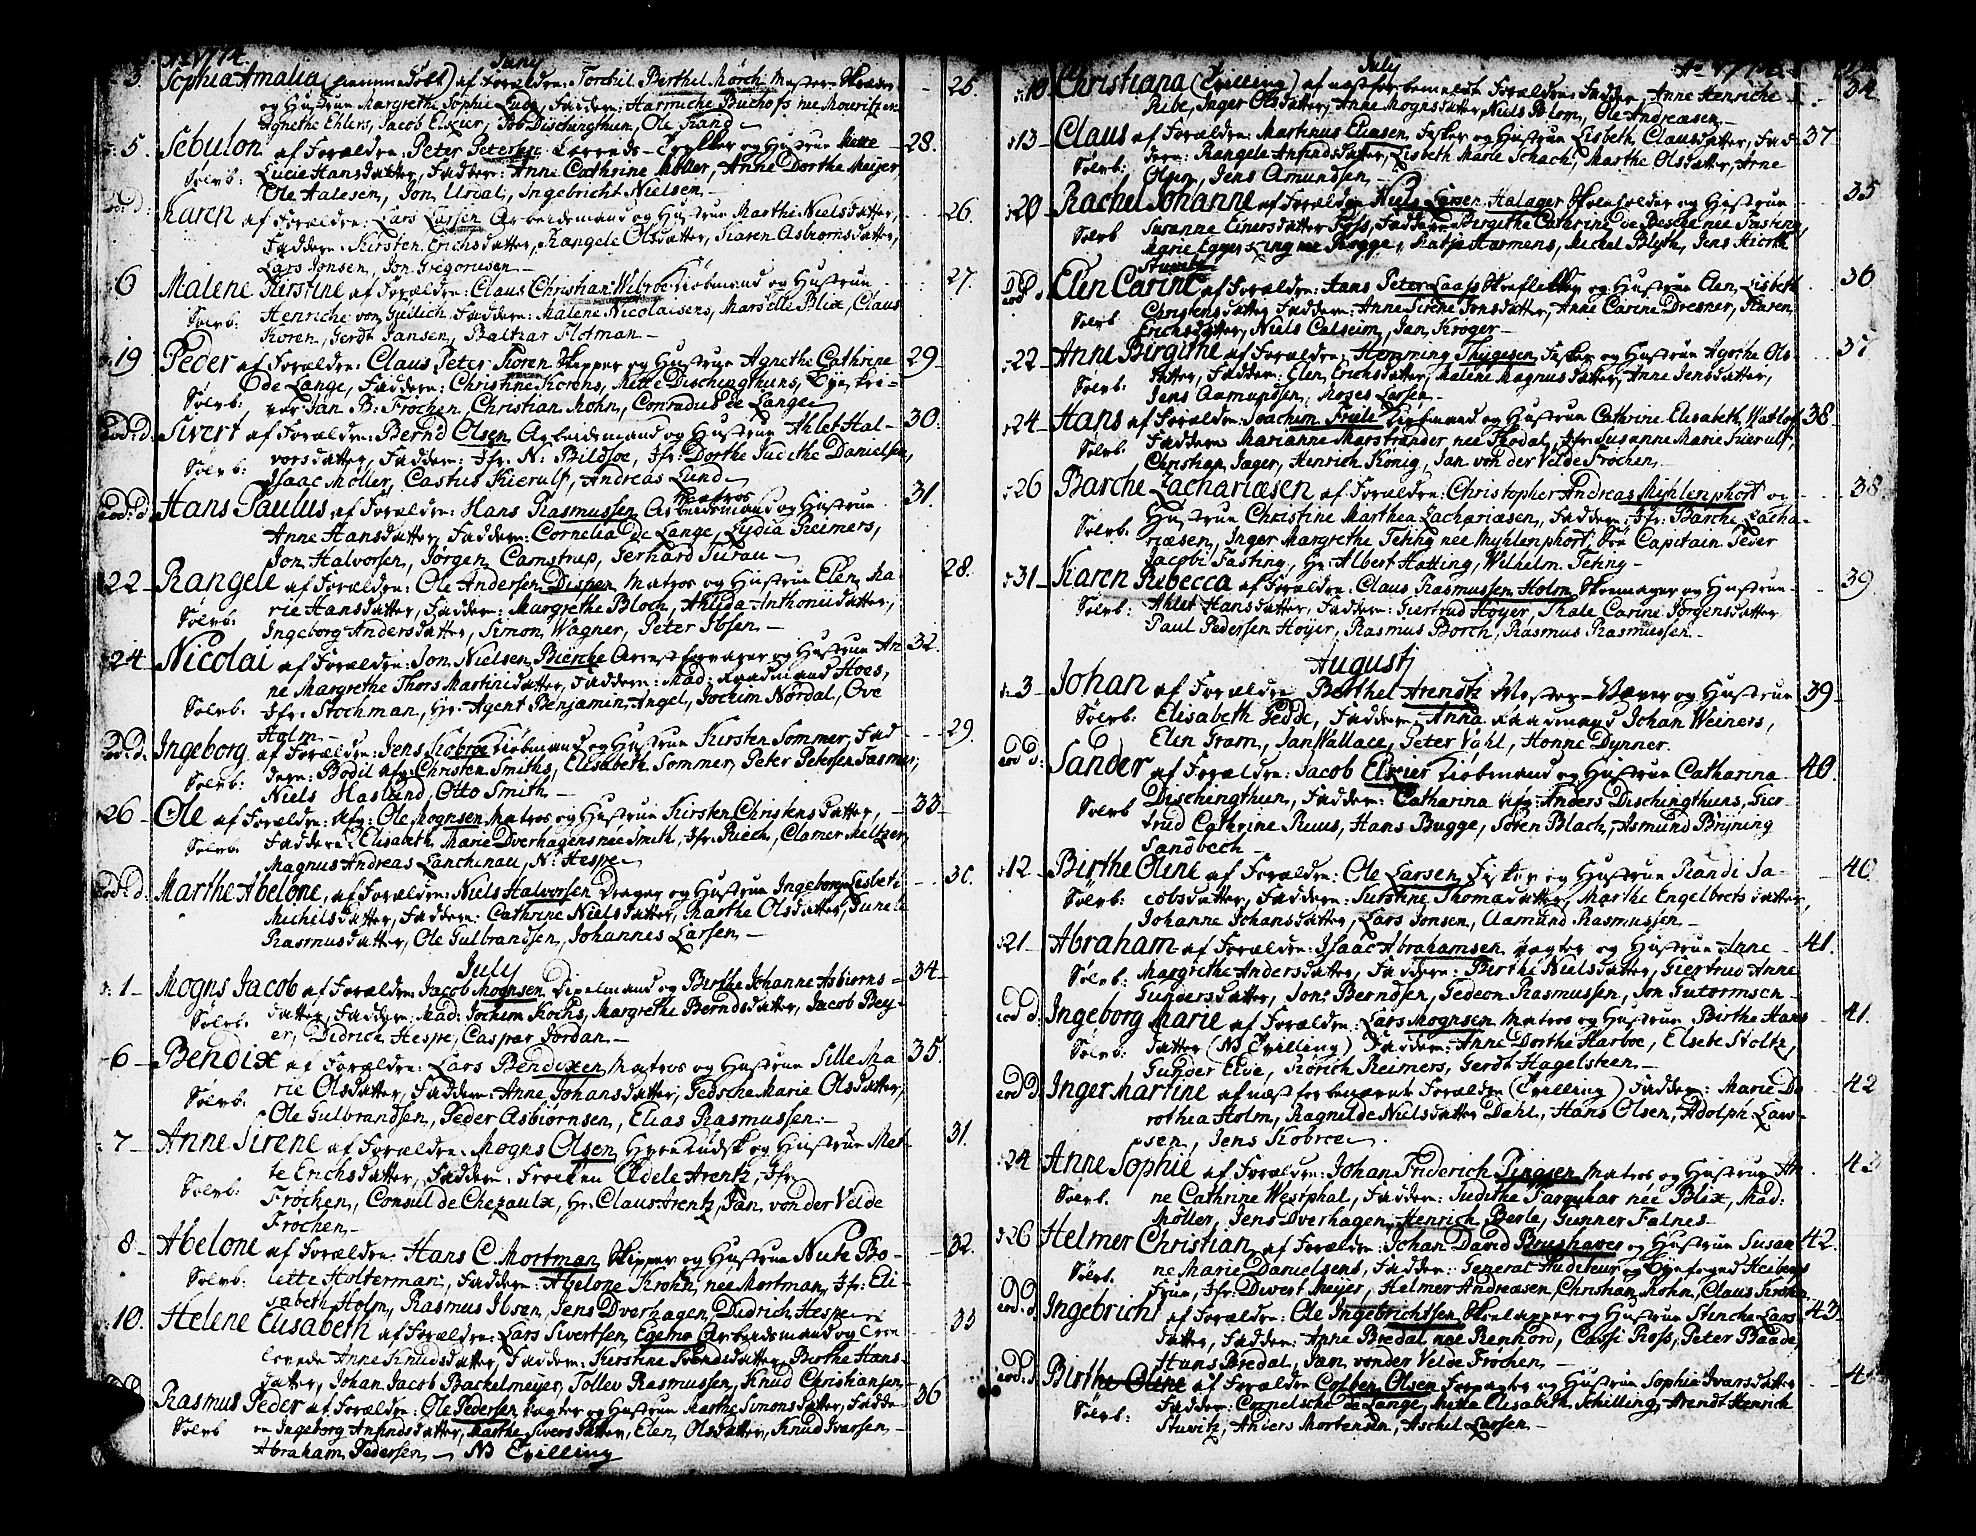 Ao 1774.
Juny
3. Sophia Amalia (hiemme Døbt) af Forældre: Torchil Berthel Mörch Mester 25.
og Hustrue Margrethe Sophie Faddere: Harmiche Buchofs née Mowritzen
Agnethe Ehlers, Jacob Elxier, Job Dischingthun, Ole Strand
5. Sebulon af Forældre: Peter Petersen og Hustrue Mette 28.
Sølvb: Lucie Hansdatter, Faddere: Anne Cathrine Möller, Anne Dorthe Meijer,
Ole Aalesen, Jon Urdal, Ingebricht Nielsen.
eod: d: Karen af Forældre: Lars Larsen Arbeidsmand og Hustrue Marthe Nielsdatter, 26.
Faddere: Kirsten Erichsdatter, Rangele Olsdatter, Karen Asbiornsdatter,
Lars Jonsen, Jon Gregoriusen
6 Malene Kirstine af Forældre: Claus Christian Wibroe Kiøbmand og Hustrue 27.
Sølvb: Henriche von Gülich, Faddere: Malene Nicolaisens, Marselie Blix, Claus
Koren, Gerdt Jansen, Baltzar Flotman
19 Peder af Forældre: Claus Peter Koren Skipper og Hustrue Agnethe Cathrine 29
Sølvb: de Lange, Faddere: Christine Korens, Mette Dischingthuns, Bye Skri=
ver Jan B: Fröchen, Christian Mohn, Conradus de Lange
eod: d. Sivert af Forældre: Bernd Olsen Arbeidsmand og Hustrue Ahlet Hal= 30.
Sølvb: vorsdatter, Faddere: Jfr. N: Bildsöe, Jfr: Dorthe Judithe Danielsen,
Isaac Möller, Castus Kierulf, Andreas Lund
Matros
eod: d Hans Paulus af Forældre: Hans Rasmussen Arbeidsmand og Hustrue 31.
Anne Hansdatter, Faddere: Cornelia de Lange, Lydia Reimers,
Jon Halvorsen, Jörgen Camstrup, Gerhard Turau
22 Rangele af Forældre: Ole Andersen Matros og Hustrue Elen Ma 28.
Sølvb: rie Hansdatter, Faddere: Margrethe Bloch, Ahlida Anthoniidatter,
Ingeborg Andersdatter, Simon Wagner, Peter Ibsen
24 Nicolai af Forældre: Jon Nielsen Biercke og Hustrue An 32.
ne Margrethe Thors Martinidatter, Faddere: Mad: Hoes,
Sølvb. Jfr: Stochman, Hr. Agent Benjamin Angel, Jochim Nordal, Ove
Holm
eod: d: Ingeborg af Forældre: Jens Kobroe Kiøbmand og Hustrue Kirsten Sommer, Fad 29.
Sølvb: dere: Bodil Afg: Christen Smiths, Elisabeth Sommer, Peter Petersen Fasmer,
Niels Haslund, Otto Smith
26 Ole af Forældre: Afg: Ole Mognsen Matros og Hustrue Kirsten Christensdatter, 33
Sølvb: Faddere: Elisabth Marie Dverhagens née Smith, Jfr: Riech, Clamer Meltzer,
Magnus Andreas Lanchenau, N: Hespe
eod: d. Marthe Abelone, af Forældre: Niels Halvorsen Drager og Hustrue Ingeborg Lisbeth 30.
Michilsdatter, Faddere: Cathrine Nielsdatter, Marthe Olsdatter,
Rasmusdatter, Ole Gulbrandsen, Johannes Larsen
July
1 Mogns Jacob af Forældre: Jacob Mognsen og Birthe Johanne Asbiørns= 34
Sølvb. datter, Faddere: Mad: Jochim Kochs, Margrethe Berndsdatter, Jacob Bey=
er, Didrich Hespe, Caspar Jordan
6 Bendix af Forældre: Lars Bendixen Matros og Hustrue Sille Ma 35.
Sølvb: rie Olsdatter, Faddere: Anne Johansdatter, Gedsche Marie Olsdatter,
Ole Gulbrandsen, Peder Asbiørnsen, Elias Rasmussen.
7 Anne Sirene af Forældre: Mogns Olsen og Hustrue Mar= 31.
Sølvb: te Erichsdatter, Faddere: Frøcken Edele Arentz, Jfr.
Fröchen, Consul de Chezaulx, Hr. Claus Arentz, Jan von der Velde
Fröchen
8 Abelone af Forældre: Hans C. Mortman Skipper og Hustrue Bo= 32.
Sølvb: lette Holterman, Faddere: Abelone Krohn née Mortman, Jfr: Eli=
sabeth Holm, Rasmus Ibsen, Jens Dverhagen, Didrich Hespe
10. Helene Elisabeth af Forældre: Lars Sivertsen Arbeidsmand og Tro= 33
lovede Anne Knudsdatter, Faddere: Kierstine Svendsdatter, Birthe Hans=
datter, Johan Jacob Backelmeyer, Tollev Rasmussen, Knud Christiansen
Rasmus Peder af Forældre: Ole Pedersen og Hustrue Marthe Simonsdatter, Fadde= 36
Sølvb re Ingeborg Anfindsdatter, Marthe Siversdatter, Elen Olsdatter, Knud Ivarsen
Abraham Pedersen NB Tvilling
Ao 1774.
July
10 Christiana (Tvilling) af næstforbemeldte Forældre, Faddere: Anne Henriche 34
Ribe, Jager Olsdatter, Anne Mognsdatter, Niels Blom, Ole Andreasen
13 Claus af Forældre: Martinus Eliasen, Fisker og Hustrue Lisbeth Clausdatter, Fad 37
Sølvb: dere: Rangele Anfindsdatter, Lisbeth Marie Schach, Marthe Olsdatter, Arne
Olsen, Jens Amundsen
20 Rachel Johanne af Forældre Niels Larsen Halager og Hustrue 35
Sølvb Susanne Einersdatter Foss, Faddere: Birgithe Cathrine de Besche née Fasting,
Marie Eggerking née Rogge, Katje Harmens, Michel Blyth, Jens Hiorth
Stuwitz
eod d: Elen Carine af Forældre: Hans Peter Laass og Hustrue Elen Lisbeth 36
Sølvb Christensdatter, Faddere: Anne Sirene Jonsdatter, Anne Carine Dresner, Karen
Erichsdatter, Niels Calseim, Jan Kröger
22 Anne Birgithe af Forældre: Hemming Thygesen Fisker og Hustrue Agothe Ols= 37
Sølvb: datter, Faddere: Elen Erichsdatter, Malene Magnusdatter, Anne Jensdatter,
Jens Aamundsen, Moses Larsen
24 Hans af Forældre: Joachim Friele Kiøbmand og Hustrue Cathrine Elisabeth Wallof 38
Sølvb: Faddere: Marianne Marstrander née Frodal, Jfr: Susanne Marie Kierulf,
Christian Jager, Henrich König, Jan von der Velde Fröchen
26 Barche Zachariæsen af Forældre: Christopher Andreas Myhlenphort og 38
Sølvb: Hustrue Christine Marthea Zachariæsen, Faddere: Jfr: Barche Zacha=
riæsen, Inger Margrethe Fehny née Myhlenphort, Hr: Capitain Peder
Jacobi Fasting, Hr. Albert Hatting, Wilhelm Fehny
31 Karen Rebecca af Forældre: Claus Rasmussen Holm Skoemager og Hustrue 39
Sølvb: Ahlet Hansdatter, Faddere: Giertrud Höyer, Thale Carine Jørgensdatter
Paul Pedersen Höyer, Rasmus Borch, Rasmus Rasmussen
Augustj
3 Johan af Forældre Berthel Arendtz Mester Væver og Hustrue 39
Sølvb: Elisabeth Gedde, Faddere: Anna Johan Weiners,
Elen Gram, Jan Wallace, Peter Vahl, Honne Dynner.
eod D: Sander af Forældre: Jacob Elxier Kiøbmand og Hustrue Catharina 40.
Sølvb Dischingthun, Faddere: Catharina Afg: Anders Dischingthuns, Gier=
trud Cathrine Ruus, Hans Bugge, Sören Blach, Asmund Bryning
Sandbech
12 Birthe Oline af Forældre: Ole Larsen Fisker og Hustrue Randi Ja= 40
Sølvb: cobsdatter, Faddere: Kirstine Thomadatter, Marthe Engelbretsdatter,
Johanne Johansdatter, Lars Jonsen, Aamund Rasmussen
21 Abraham af Forældre: Isaac Abrahamsen og Hustrue Anne 41.
Sølvb: Margrethe Andersdatter, Faddere: Berthe Nielsdatter, Giertrud Anne
Gundersdatter, Jon Berndsen, Gedeon Rasmussen, Jon Gutormsen
eod D: Ingeborg Marie af Forældre: Lars Mognsen Matros og Hustrue Birthe Hans 41.
Sølvb: datter (NB Tvilling) Faddere: Anne Dorthe Harboe, Elsebe Stoltz,
Gunder Elve, Didrich Reimers, Gerdt Hagelsteen
eod D: Inger Martine af næst forbenævnte Forældre (Tvilling) Faddere: Marie Do 42
rothea Holm, Ragnilde Nielsdatter Dahl, Hans Olsen, Adolph Lars=
sen, Jens Kobroe.
24 Anne Sophie af Forældre: Johan Friderich Pingsen Matros og Hustrue An 43
Sølvb. ne Cathrine Westphal, Faddere: Judithe Farquhar née Blix, Mad:
Möller, Jens Dverhagen, Henrich Berle, Gunner Falnes
26 Helmer Christian af Forældre: Johan David Brushaver og Hustrue Susan 42.
Sølvb. ne Marie Danielsens, Faddere: General Auditeur og Byefoged Heibergs
Frue, Jfr. Divert Meijer, Helmer Andreæsen, Christian Mohn, Claus Krohn
eod: d Ingebricht af Forældre: Ole Ingebrichtsen og Hustrue Stinche Lars 43
datter, Faddere: Anne Bredal née Renhord, Cassi Ross, Peter Baade,
Hans Bredal, Jan von der Velde Fröchen
eod: d. Birthe Oline af Forældre Colben Olsen og Hustrue Sophia Ivarsdatter 44
Sølvb: Faddere: Cornelsche de Lange, Mette Elisabeth Schilling, Arendt Henrich
Stuwitz, Anders Mortensen, Aschel Larsen